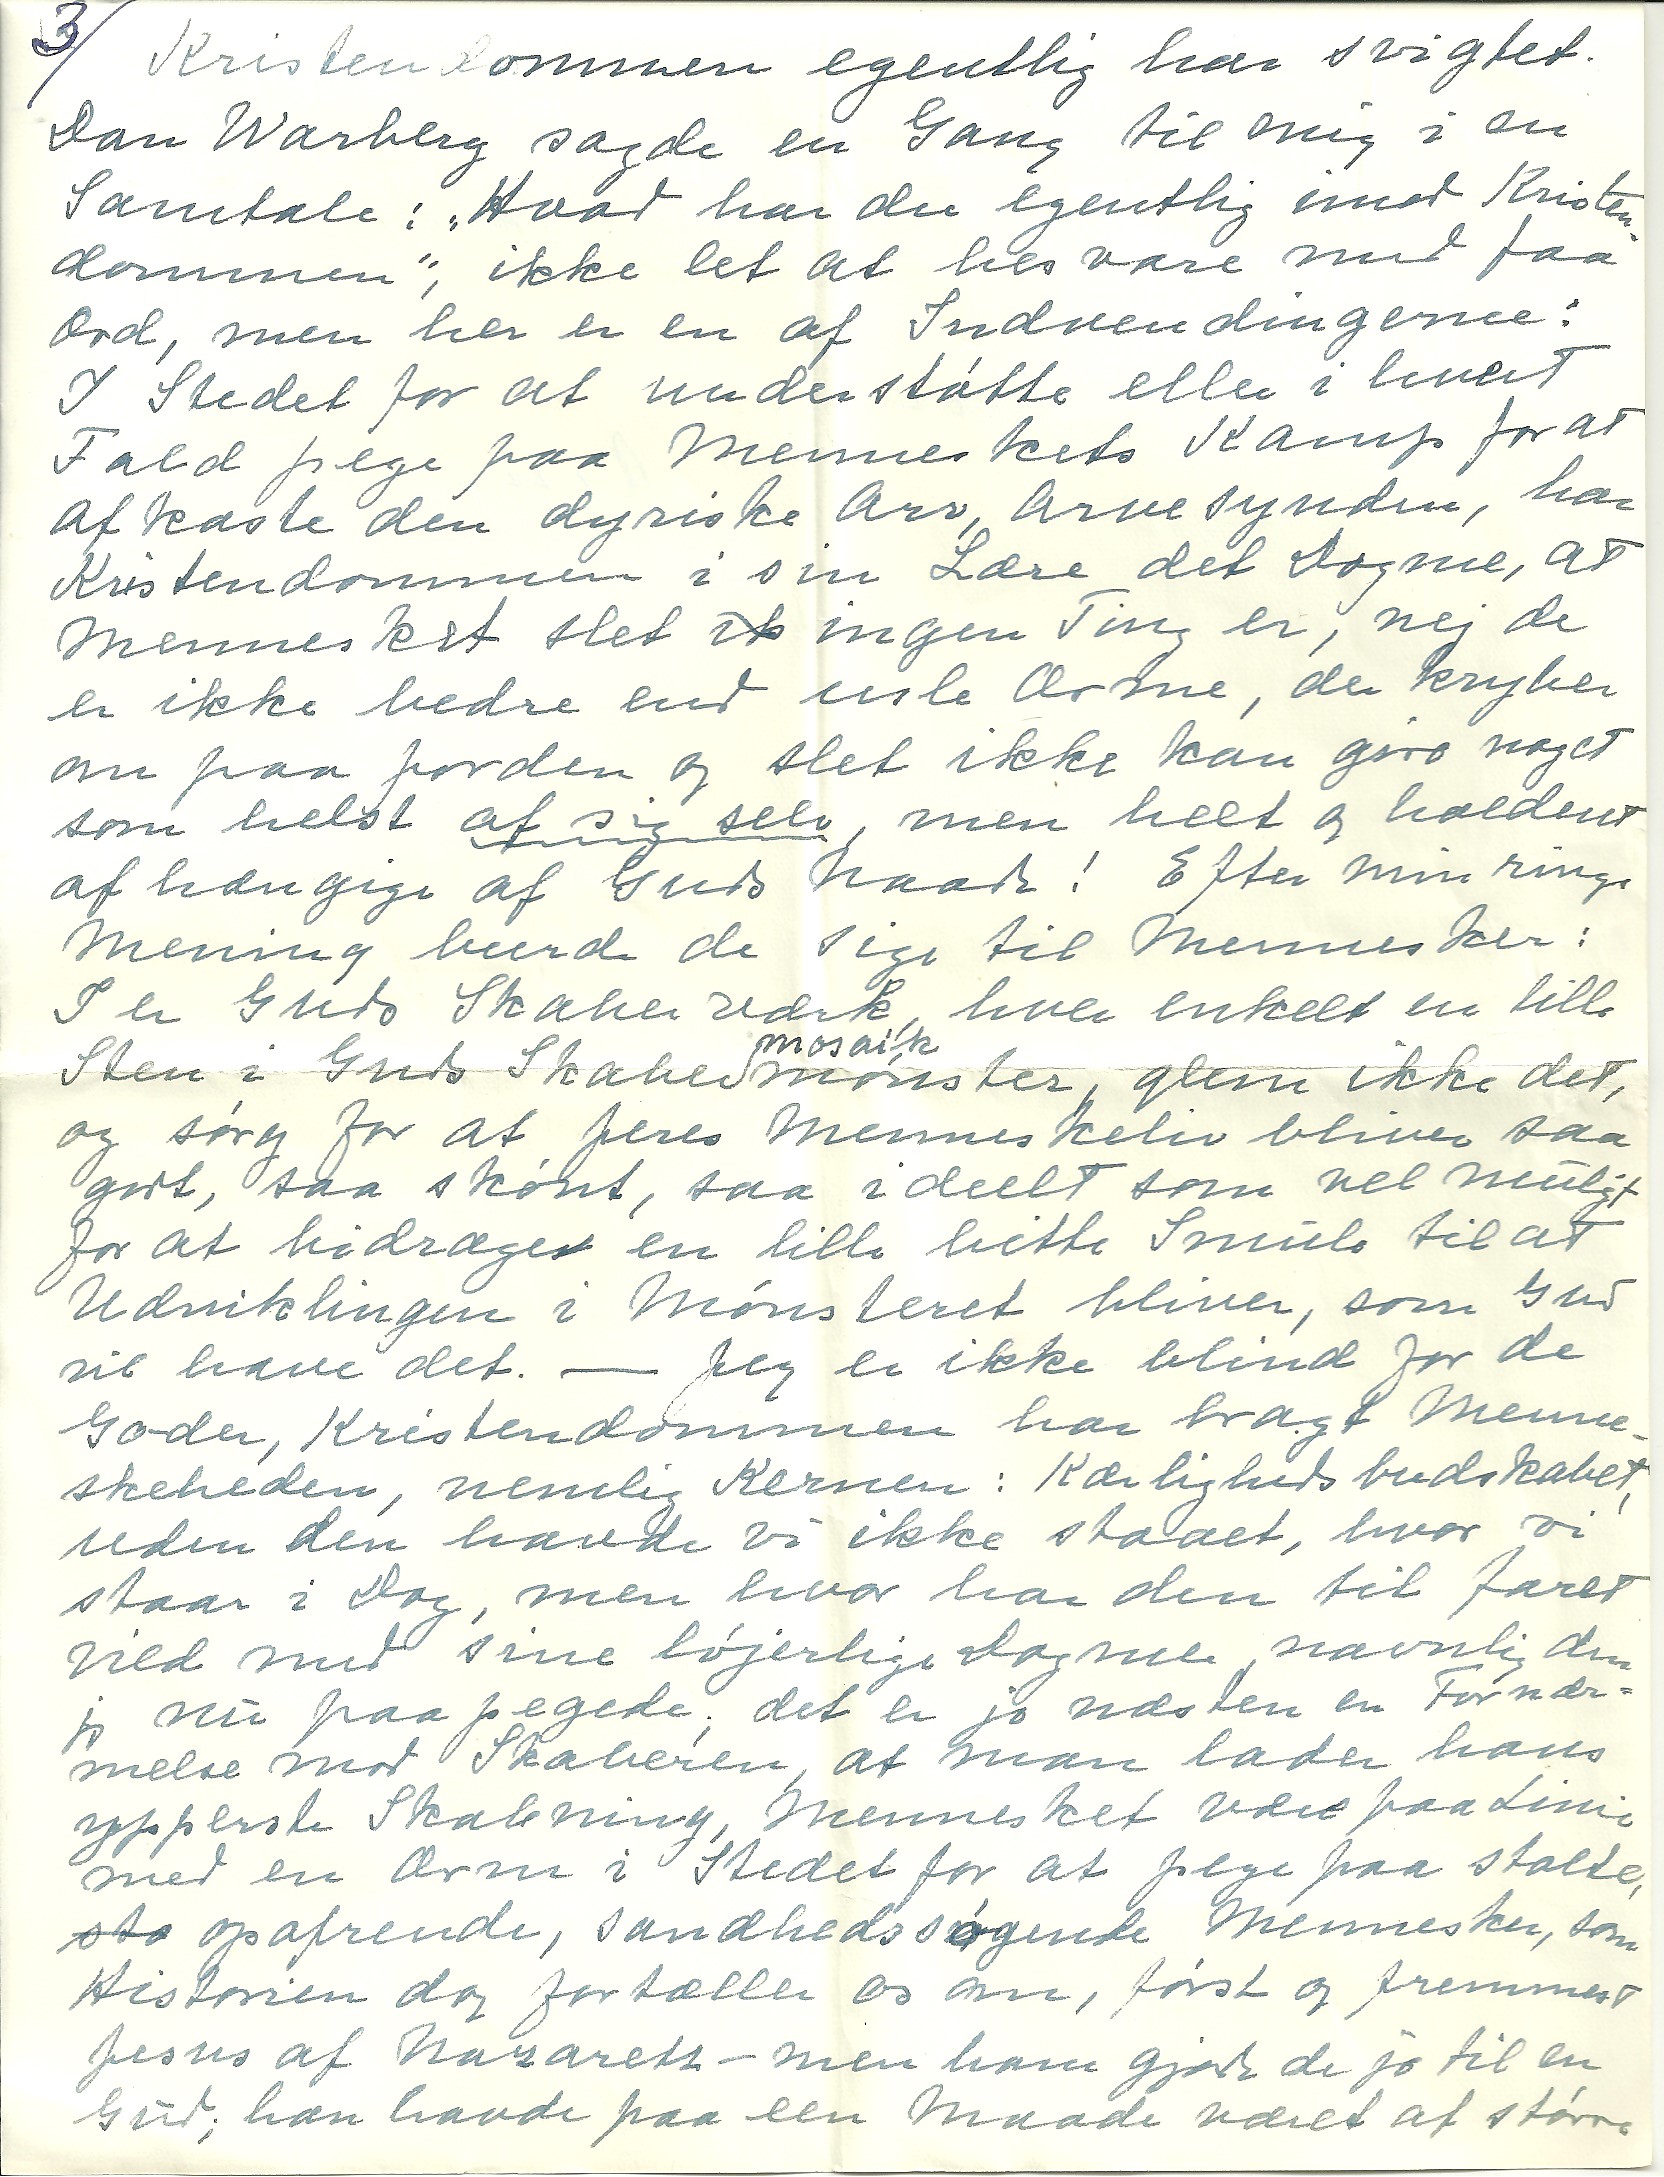 3/
Kristendommen egentlig har svigtet.
Dan Warberg sagde en Gang til mig i en
Samtale: "Hvad har du egentlig imod Kristen-
dommen", ikke let at besvare med faa
Ord, men her er en af Indvendingerne:
I Stedet for at understøtte eller i hvert
Fald pege paa Menneskets Kamp for at
afkaste den dyriske Arv, Arvesynden, har
Kristendommen i sin Lære det Dogme, at
Mennesket slet ingen Ting er, nej de
er ikke bedre end usle Orme, der kryber
om paa Jorden og slet ikke kan gøre noget
som helst af sig selv, men helt og holdent
afhængige af Guds Naade! Efter min ringe
Mening burde de sige til Mennesker:
I er Guds Skaberværk, hver enkelt en lille
Sten i Guds Skaber mosaik mønster, glem ikke det,
og sørg for at Jeres Menneskeliv bliver saa
godt, saa skønt, saa ideelt som vel muligt
for at bidrage en lille bitte Smule til at
Udviklingen i Mønsteret bliver, som Gud
vil have det. — Jeg er ikke blind for de
Goder, Kristendommen har bragt Menne-
skeheden, nemlig Kernen: Kærlighedsbudskabet,
uden den havde vi ikke staaet, hvor vi
staar i Dag, men hvor har den til faret
vild med sine løjerlige Dogmer, navnlig den
jg nu paapegede; det er jo næsten en Fornær-
melse mod Skaberen, at man lader hans
ypperste Skabning, Mennesket være paa Linie
med en Orm i Stedet for at pege paa stolte,
sto opofrende, sandhedssøgende Mennesker, som
Historien dog fortæller os om, først og fremmest
Jesus af Nazareth – men ham gjorde de jo til en
Gud; han havde paa een Maade været af større